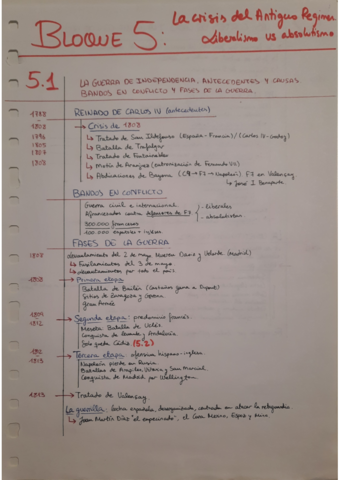 BLOQUE 5:
La crisis del Antiguo Régimen
Liberalismo vs absolutismo
5.1
LA GUERRA DE INDEPENDENCIA, ANTECEDENTES Y CAUSAS.
BANDOS EN CONFLICTO Y FASES DE LA GUERRA.
1788
REINADO DE CARLOS IV (antecedentes)
→ Crisis de 1808
1796
↳ Tratado de San Ildefonso (España - Francia) / (Carlos IV - Godoy)
1805
↳ Batalla de Trafalgar
1807
↳ Tratado de Fontainebleau
1808
↳ Motín de Aranjuez
↳ Abdicaciones de Bayona
F7 en Valençay
↳ José I Bonaparte
BANDOS EN CONFLICTO
Guerra civil e internacional
Afrancesados contra defensores de F7
- liberales
- absolutistas
300.000 franceses
FASES DE LA GUERRA
Levantamiento del 2 de mayo
(Madrid)
↳ Fusilamientos del 3 de mayo
↳ levantamientos por todo el país
1808
→ Primera etapa
Batalla de Bailén
Sitios de Zaragoza y Gerona
Gran Armée
1809
1812
→ Segunda etapa: predominio francés
Batalla de Uclés
Conquista de Levante y Andalucía
Solo queda Cádiz (5.2)
1812
1813
→ Tercera etapa: ofensiva hispano-inglesa
Napoleón pierde en Rusia
Batallas de Arapiles, Vitoria y San Marcial
Conquista de Madrid por Wellington
1813
→ Tratado de Valençay
La guerrilla: táctica española, desorganizada, centrada en atacar la retaguardia
↳ Juan Martín Díaz "el empecinado", el Cura Merino, Espoz y Mina